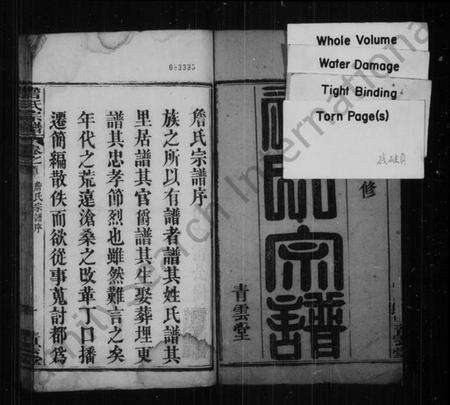 6-3335
Whole Volume
Water Damage
Tight Binding
Torn Page(s)
修
宗譜
青雲堂
詹氏宗譜序
族之所以有譜者譜其姓氏譜其
里居譜其官爵譜其生娶葬埋更
譜其忠孝節烈也雖然難言之矣
年代之荒遠滄桑之改革丁口播
遷簡編散佚而欲從事蒐討都為
詹氏宗譜
卷之首
詹氏宗譜序
一
青雲堂